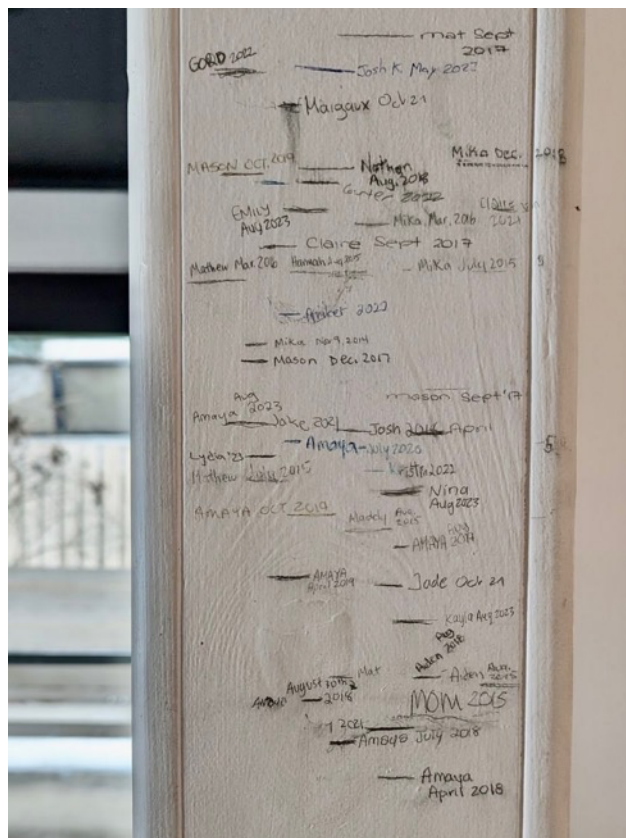 mat Sept
2017
GORD 2022
Josh K May 2022
Margaux Oct 21
Mika Dec. 2018
MASON OCT. 2019
Nathan
Aug. 2018
2022
Claire
2021
EMILY
Aug 2023
Mika Mar. 2016
Claire Sept 2017
Mathew Mar. 2016
Hannah
Mika July 2015
2022
Mika Nov 9, 2014
Mason Dec. 2017
mason Sept '17
Amaya Aug 2023
Jake 2021
Josh 2018 April
Amaya - July 2020
5
Lydia '23
Matthew July 2015
2022
Nina
Aug 2023
AMAYA OCT 2019
Maddy Aug
2015
AMAYA Aug
AMAYA
April 2019
Jade Oct 21
Kayla Aug 2023
Aiden Aug 2018
Mat
Aiden
2015
Amaya August 10th
2018
MOM 2015
2021
Amaya July 2018
Amaya
April 2018